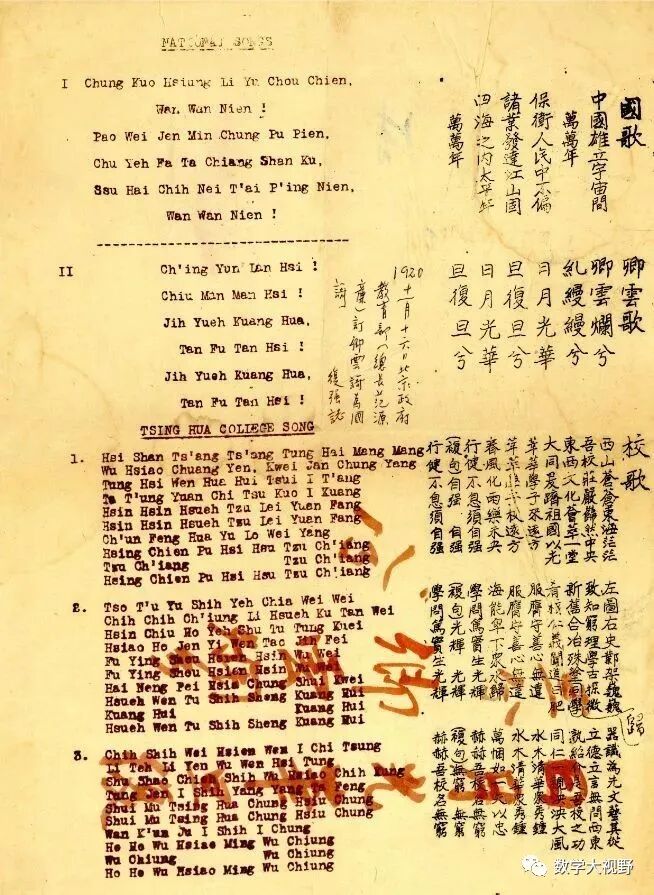 NATIONAL SONGS
I Chung Kuo Hsiung Li Yu Chou Chien,
Wan Wan Nien !
Pao Wei Jen Min Chung Pu Pien,
Chu Yeh Fa Ta Chiang Shan Ku,
Ssu Hai Chih Nei T'ai P'ing Nien,
Wan Wan Nien !
國歌
中國雄立宇宙間
萬萬年
保衛人民中不偏
諸業發達江山國
四海之內太平年
萬萬年
II Ch'ing Yun Lan Hsi !
Chiu Man Man Hsi !
Jih Yueh Kuang Hua,
Tan Fu Tan Hsi !
Jih Yueh Kuang Hua,
Tan Fu Tan Hsi !
卿雲歌
卿雲爛兮
糺縵縵兮
日月光華
旦復旦兮
日月光華
旦復旦兮
1920
十一月十六日北京政府
教育部(總長范源
廉)訂卿雲謌為國
謌 復强誌
TSING HUA COLLEGE SONG
1. Hsi Shan Ts'ang Ts'ang Tung Hai Mang Mang
Wu Hsiao Chuang Yen, Kwei Jan Chung Yang
Tung Hsi Wen Hua Hui Tsui I T'ang
Ta T'ung Yuan Chi Tsu Kuo I Kuang
Hsin Hsin Hsueh Tzu Lei Yuan Fang
Hsin Hsin Hsueh Tzu Lei Yuan Fang
Ch'un Feng Hua Yu Lo Wei Yang
Hsing Chien Pu Hsi Hsu Tzu Ch'iang
Tzu Ch'iang Tzu Ch'iang
Hsing Chien Pu Hsi Hsu Tzu Ch'iang
校歌
西山蒼蒼東海茫茫
吾校莊嚴巋然中央
東西文化薈萃一堂
大同爰躋祖國以光
莘莘學子來遠方
莘莘學子來遠方
春風化雨樂未央
行健不息須自强
(複句)自强 自强
行健不息須自强
2. Tso T'u Yu Shih Yeh Chia Wei Wei
Chih Chih Ch'iung Li Hsueh Ku Tan Wei
Hsin Chiu Ho Yeh Shu Tu Tung Kuei
Hsiao Ho Jen Yi Wen Tao Jih Fei
Fu Ying Shou Hsien Hsin Wu Wei
Fu Ying Shou Hsien Hsin Wu Wei
Hai Neng Pei Hsia Chung Shui Kwei
Hsueh Wen Tu Shih Sheng Kuang Hui
Kuang Hui Kuang Hui
Hsueh Wen Tu Shih Sheng Kuang Hui
左圖右史鄴架巍巍
致知窮理學古探微
新舊合冶殊塗同
歸
聞道日肥
服膺守善心無違
服膺守善心無違
海能卑下衆水歸
學問篤實生光輝
(複句)光輝 光輝
學問篤實生光輝
3. Chih Shih Wei Hsien Wen I Chi Tsung
Li Teh Li Yen Wu Wen Hsi Tung
Shu Shao Chieh Shih Wu Hsiao Chih Kung
Tung Jen I Shih Yang Yang Ta Feng
Shui Mu Tsing Hua Chung Hsiu Chung
Shui Mu Tsing Hua Chung Hsiu Chung
Wan K'un Ju I Shih I Chung
Ho Ho Wu Hsiao Ming Wu Chiung
Wu Chiung Wu Chiung
Ho Ho Wu Hsiao Ming Wu Chiung
器識為先文藝其從
立德立言無問西東
孰紹介是吾校之功
同仁一視泱泱大風
水木清華衆秀鍾
水木清華衆秀鍾
萬悃如一矢以忠
赫赫吾校名無窮
(複句)無窮 無窮
赫赫吾校名無窮
数学大视野